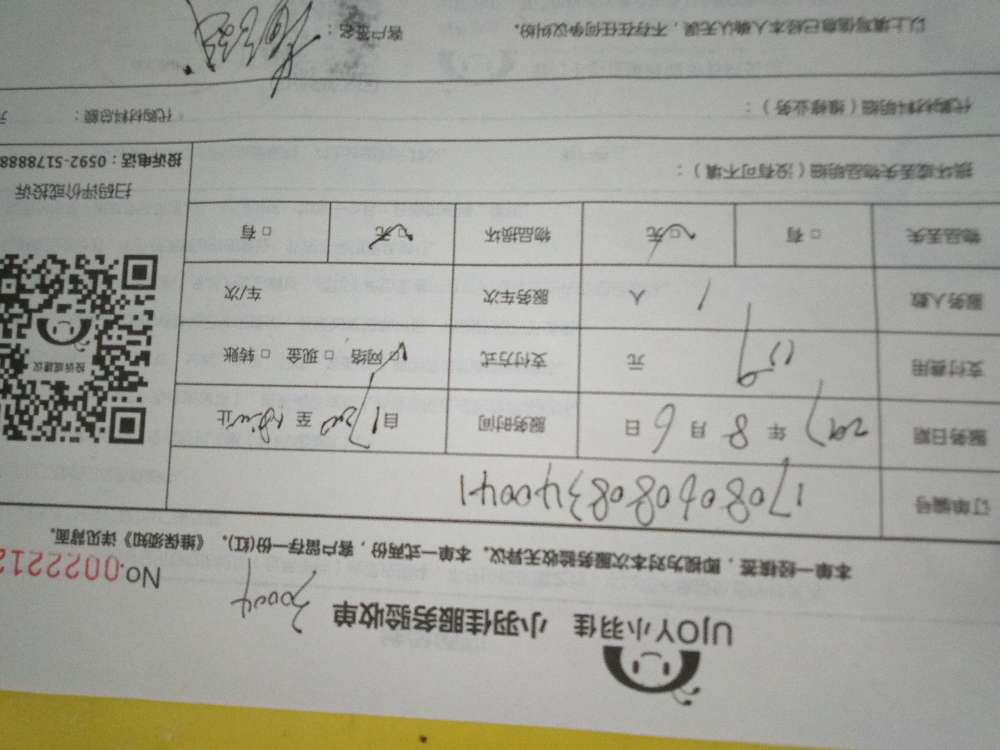 UJOY小羽佳 小羽佳服务验收单
30004
No.002212
本单一经核签，即视为对本次服务验收无异议。本单一式两份，客户留存一份(红)。《维保须知》详见背面。
订单编号 1708060808340041
服务日期 2017 年 8 月 6 日 服务时间 自 至 止
支付费用 元 支付方式 网络 □ 现金 □ 转账
服务人数 1 人 服务车次 车/次
物品丢失 □ 有 □ 无 物品损坏 □ 无 □ 有
投诉或建议
扫码评价或投诉
投诉电话：0592-5178888
损坏或丢失物品明细（没有可不填）：
代购材料明细（维修业务）： 代购材料总额： 元
以上填写信息已经本人确认无误，不存在任何争议纠纷。 客户签名：